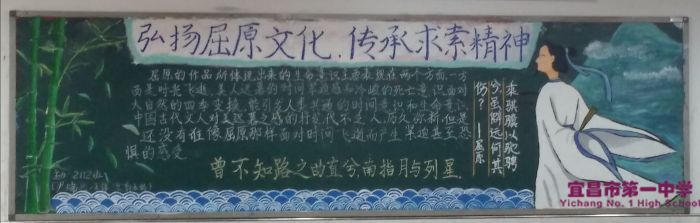 弘扬屈原文化，传承求索精神
屈原的作品所体现出来的生命意识主要表现在两个方面，一方
面是时光飞逝，美人迟暮的时间紧迫感和冷峻的死亡意识，面对
大自然的四季变换，能引发人类共通的时间意识和生命意识，
中国古代文人对美迟暮之感的抒发代不乏人，历久弥新，但是
还没有谁像屈原那样面对时间飞逝而产生紧迫甚至恐
惧的感受
乘骐骥以驰骋
兮
伤？——屈原
曾不知路之曲直兮，南指月与列星
2112班
宜昌市第一中学
Yichang No. 1 High School